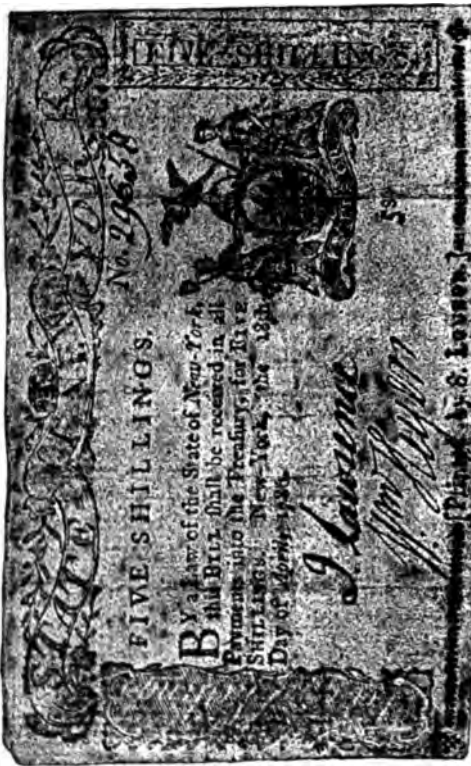 STATE OF NEW YORK
FIVE SHILLINGS
No. 29658
FIVE SHILLINGS.
BY a Law of the State of New-York,
this BILL shall be received in all
Payments into the Treasury, for FIVE
SHILLINGS. New-York, the 18th
Day of April, 1786.
5s.
J. Lawrence
[Printed by S. Loudon.]